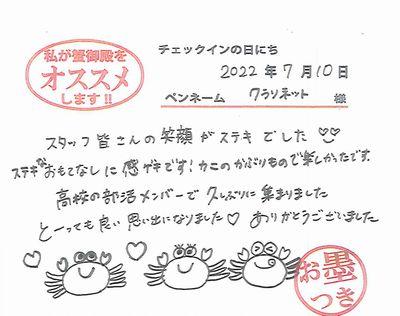 私が蟹御殿を
オススメ
します!!
チェックインの日にち
2022年7月10日
ペンネーム クラリネット 様
スタッフ皆さんの笑顔がステキでした♡♡
ステキなおもてなしに感ゲキです!カニのかぶりもので楽しかったです。
高校の部活メンバーで久しぶりに集まりました
と〜っても良い思い出になりました♡ ありがとうございました
お墨
つき